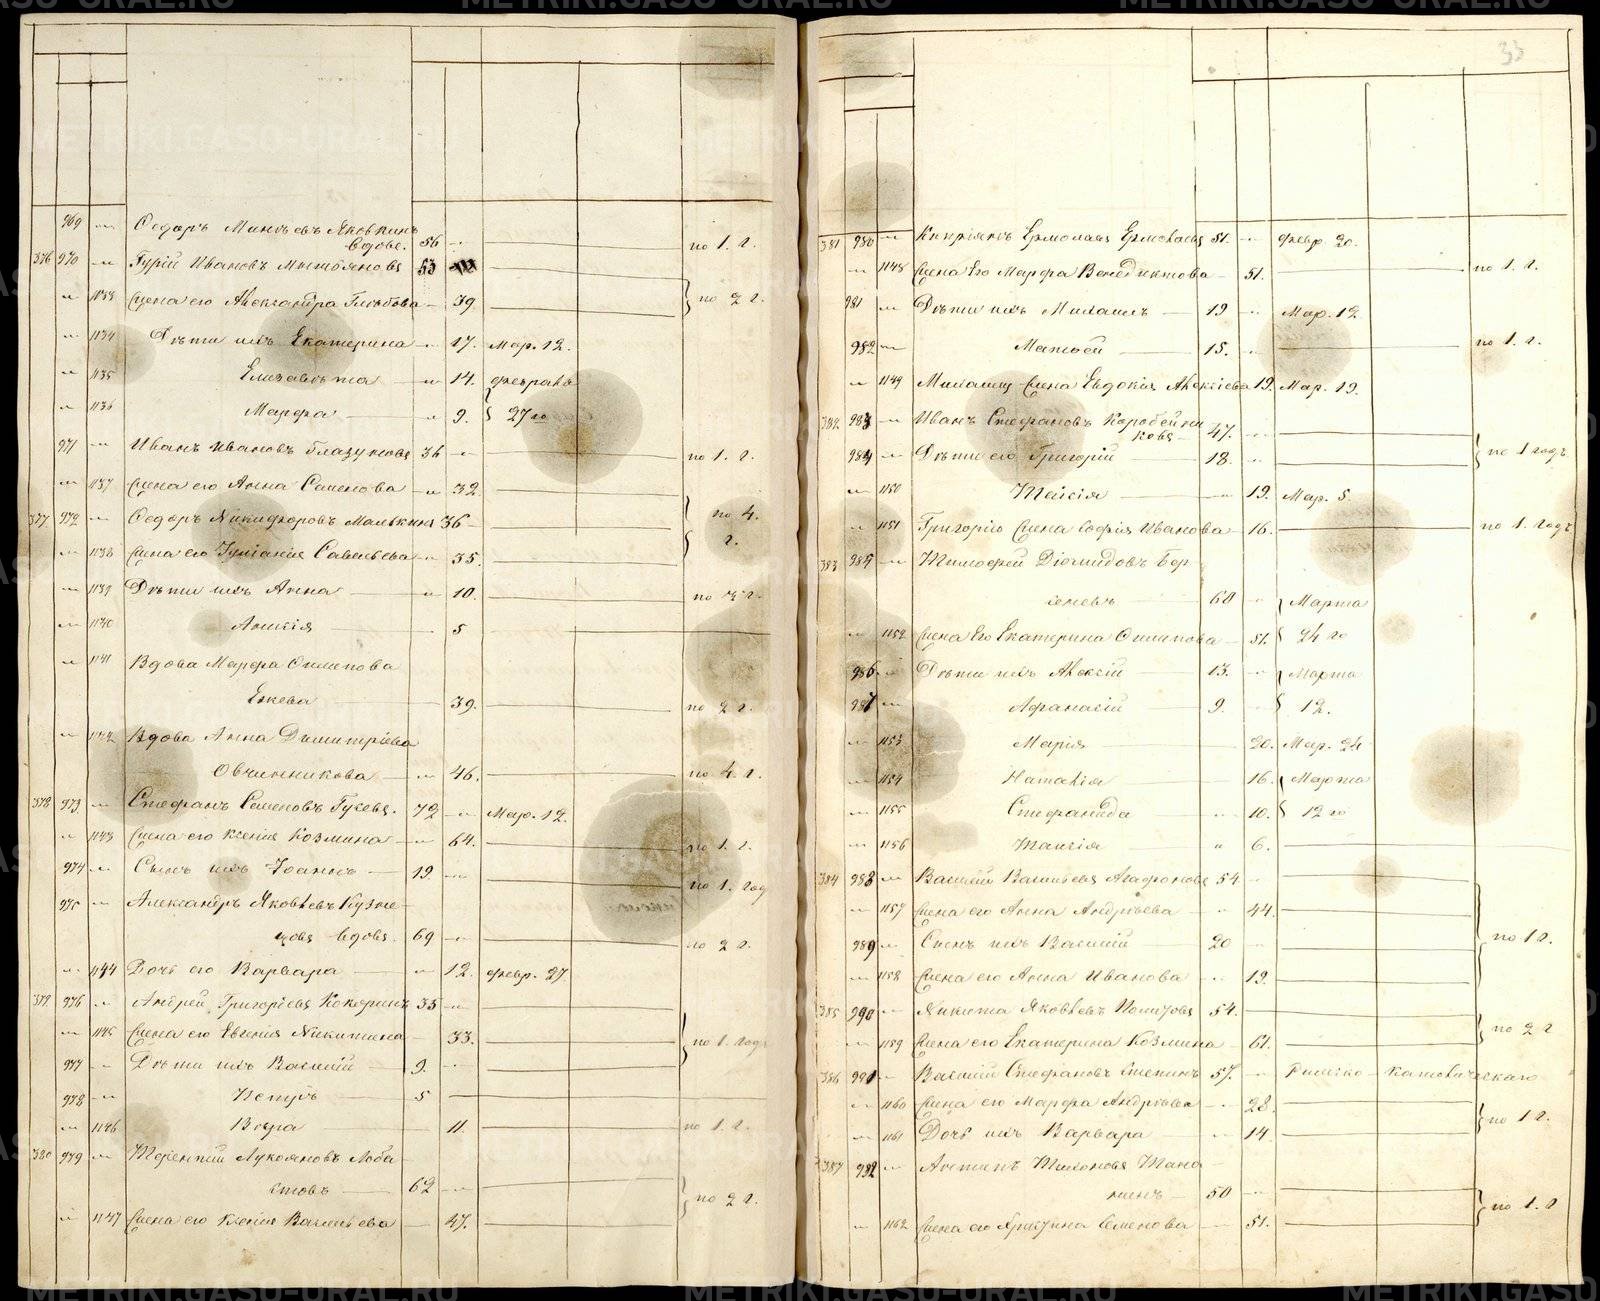 969 Ѳедоръ Матвѣевъ Яковкинъ
вдовъ. 56 по 1. г.
376 970 Гурій Ивановъ 53
1133 Жена его Александра Глѣбова 39. по 2 г.
1134 Дѣти ихъ Екатерина 17. Мар. 12.
1135 Елизавѣта 14. февраля
1136 Марѳа 9. 27го
971 Иванъ Ивановъ Глазуновъ 36 по 1. г.
1137 Жена его Анна Семенова 32.
377 972 Ѳедоръ Никифоровъ Малькинъ 36 по 4.
1138 Жена его Іуліанія Савельева 35. г.
1139 Дѣти ихъ Анна 10. по 3 г.
1140 Анисія 5
1141 Вдова Марѳа Осипова
Ежева 39. по 2 г.
1142 Вдова Анна Димитріева
Овчинникова 46. по 4 г.
378 973 Стефанъ Семеновъ Гусевъ. 72 Мар. 12.
1143 Жена его Ксенія Козмина 64. по 1. г.
974 Сынъ ихъ Іоаннъ 19 по 1. год
975 Александръ Яковлевъ Кузне
цовъ вдовъ. 69 по 2 г.
1144 Дочь его Варвара 12. февр. 27.
379 976 Андрей Григорьевъ Кокоринъ 35
1145 Жена его Евгенія Никитина 33. по 1. годъ
977 Дѣти ихъ Василій 9.
978 Петръ 5
1146 Вѣра 11. по 1. г.
380 979 Терентій Лукояновъ Лоба
стовъ 62 по 2 г.
1147 Жена его Ксенія Васильева 47.
33
381 980 Кипріянъ Ермолаевъ Ермолаевъ 51. февр. 20.
1148 Жена Его Марѳа Венедиктова 51. по 1. г.
981 Дѣти ихъ Михаилъ 19 Мар. 12.
982 Матвей 15. по 1. г.
1149 Михаилу Жена Евдокія Алексіева 19. Мар. 19.
382 983 Иванъ Стефановъ Коробейни
ковъ 47. по 1 годъ
984 Дѣти его Григорій 18.
1150 Таисія 19. Мар. 5.
1151 Григорію Жена Софія Иванова 16. по 1. годъ
383 985 Тимофей Діомидовъ Бер
сеневъ 60 Марта
1152 Жена Его Екатерина Осипова 51. 24 го
986 Дѣти ихъ Алексій 13. Марта
987 Афанасій 9. 12.
1153 Марія 20. Мар. 24
1154 Наталія 16. Марта
1155 Стефанида 10. 12 го
1156 Таисія 6.
384 988 Василій Васильевъ Агафоновъ 54
1157 Жена его Анна Андрѣева 44. по 1 г.
989 Сынъ ихъ Василій 20
1158 Жена его Анна Иванова 19.
385 990 Никита Яковлевъ 54. по 2 г
1159 Жена его Екатерина Козмина 61.
386 991 Василій Стефановъ 57. Римско-Католическаго
1160 Жена его Марѳа Андрѣева 28. по 1 г.
1161 Дочь ихъ Варвара 14.
387 992 Антипъ Тихоновъ
50 по 1. г
1162 Жена его Семенова 51.
METRIKI.GASO-URAL.RU